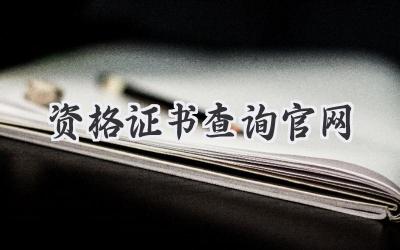 资格证书查询官网